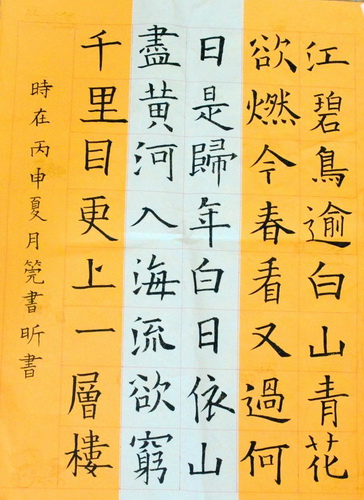 江碧鳥逾白山青花
欲燃今春看又過何
日是歸年白日依山
盡黄河入海流欲窮
千里目更上一層樓
時在丙申夏月筦書昕書